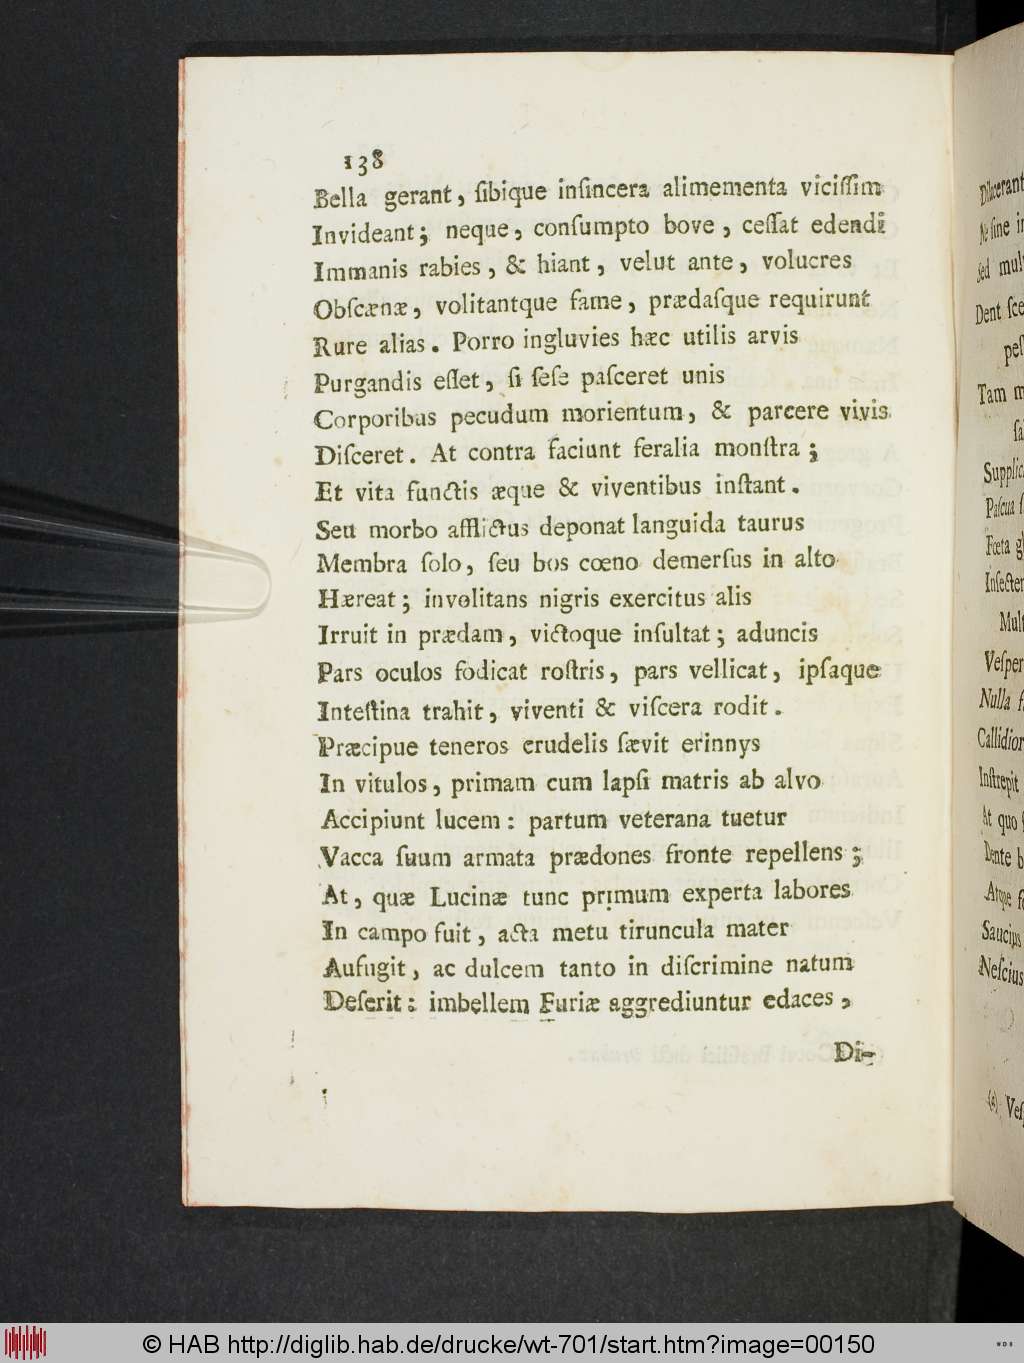 138
Bella gerant, ſibique inſincera alimementa viciſſim
Invideant; neque, conſumpto bove, ceſſat edendi
Immanis rabies, & hiant, velut ante, volucres
Obſcænæ, volitantque fame, prædaſque requirunt
Rure alias. Porro ingluvies hæc utilis arvis
Purgandis eſſet, ſi ſeſe paſceret unis
Corporibus pecudum morientum, & parcere vivis
Diſceret. At contra faciunt feralia monſtra;
Et vita functis æque & viventibus inſtant.
Seu morbo afflictus deponat languida taurus
Membra ſolo, ſeu bos cœno demerſus in alto
Hæreat; involitans nigris exercitus alis
Irruit in prædam, victoque inſultat; aduncis
Pars oculos fodicat roſtris, pars vellicat, ipſaque
Inteſtina trahit, viventi & viſcera rodit.
Præcipue teneros crudelis ſævit erinnys
In vitulos, primam cum lapſi matris ab alvo
Accipiunt lucem: partum veterana tuetur
Vacca ſuum armata prædones fronte repellens;
At, quæ Lucinæ tunc primum experta labores
In campo fuit, acta metu tiruncula mater
Aufugit, ac dulcem tanto in diſcrimine natum
Deſerit: imbellem Furiæ aggrediuntur edaces,
Di-
Dilacerant
Ne ſine
Sed
Dent
Tam
Supplic
Paſcua
Fœta
Inſecter
Mult
Veſper
Nulla
Callidior
Inſtrepit
At quo
Dente
Atque
Saucius
Neſcius
© HAB http://diglib.hab.de/drucke/wt-701/start.htm?image=00150